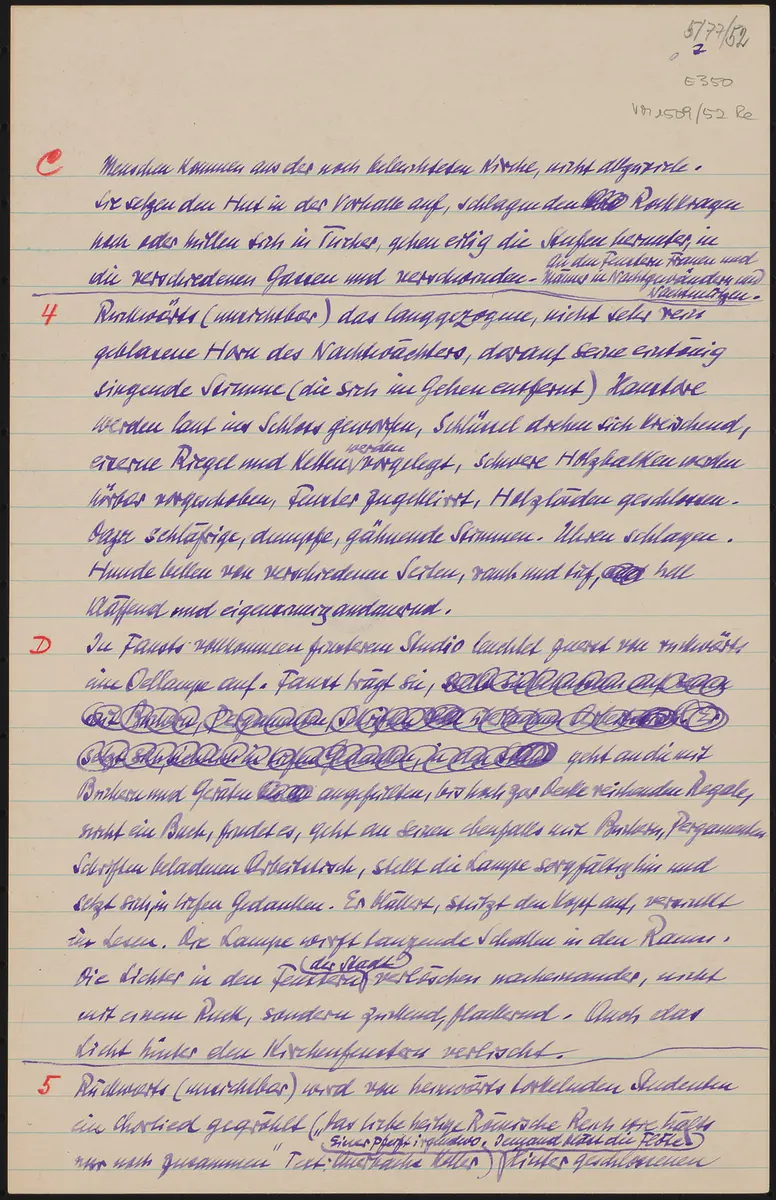 5/77/52
2
E350
VM1509/52 Re
C Menschen kommen aus der noch beleuchteten Kirche, nicht allzuviele.
Sie setzen den Hut in der Vorhalle auf, schlagen den Rockkragen
hoch oder hüllen sich in Tücher, gehen eilig die Stufen herunter, in
die verschiedenen Gassen und verschwinden - An den Fenstern Frauen und
Männer in Nachtgewändern und
Nachtmützen.
4 Rückwärts (unsichtbar) das langgezogene, nicht sehr rein
geblasene Horn des Nachtwächters, darauf seine eintönig
singende Stimme (die sich im Gehen entfernt) Haustore
werden laut ins Schloss geworfen, Schlüssel drehen sich kreischend,
eiserne Riegel und Ketten werden vorgelegt, schwere Holzbalken werden
hörbar vorgeschoben, Fenster zugeklirrt, Holzläden geschlossen.
Dazu schläfrige, dumpfe, gähnende Stimmen. Uhren schlagen.
Hunde bellen von verschiedenen Seiten, rauh und tief, hell
kläffend und eigensinnig andauernd.
D In Fausts vollkommen finsterem Studio leuchtet zuerst von rückwärts
eine Oellampe auf. Faust trägt sie,
geht an die mit
Büchern und Geräten angefüllten, bis hoch zur Decke reichenden Regale,
sucht ein Buch, findet es, geht an seinen ebenfalls mit Büchern, Pergamenten
Schriften beladenen Arbeitstisch, stellt die Lampe sorgfältig hin und
setzt sich, in tiefen Gedanken. Er blättert, stützt den Kopf auf, versinkt
ins Lesen. Die Lampe wirft tanzende Schatten in den Raum.
Die Lichter in den Fenstern (der Stadt) verlöschen nacheinander, nicht
mit einem Ruck, sondern zuckend, flackernd. Auch das
Licht hinter den Kirchenfenstern verlischt.
5 Rückwärts (unsichtbar) wird von heimwärts torkelnden Studenten
ein Chorlied gegröhlt ("Das liebe heilige Römische Reich wie hälts
nur noch zusammen" Text: Auerbachs Keller) Einer pfeift irgendwo. Jemand bläst die Flöte. Hinter geschlossenen